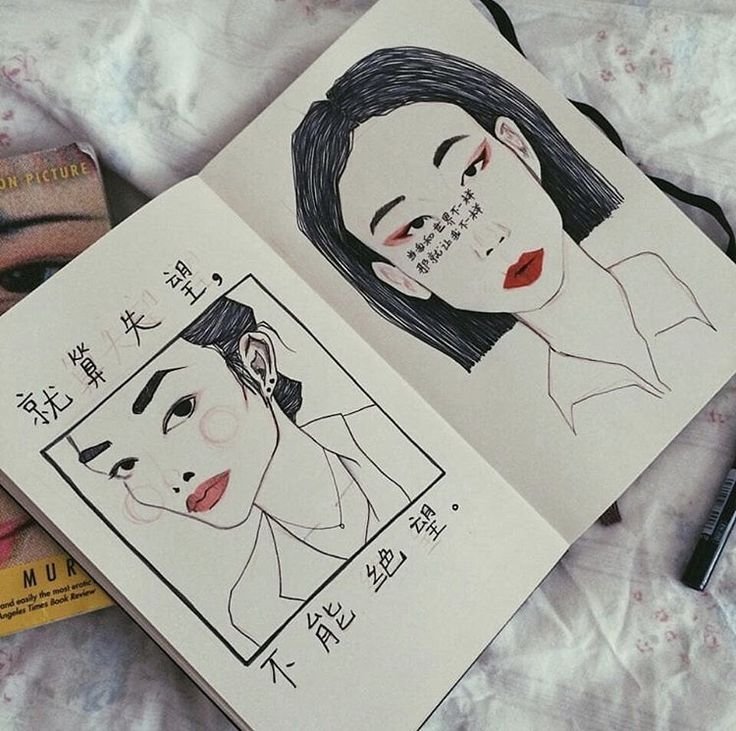 就算失望，
不能绝望。
当你和世界不一样
那就让你不一样
ON PICTURE
MUR
and easily the most erotic
Angeles Times Book Review